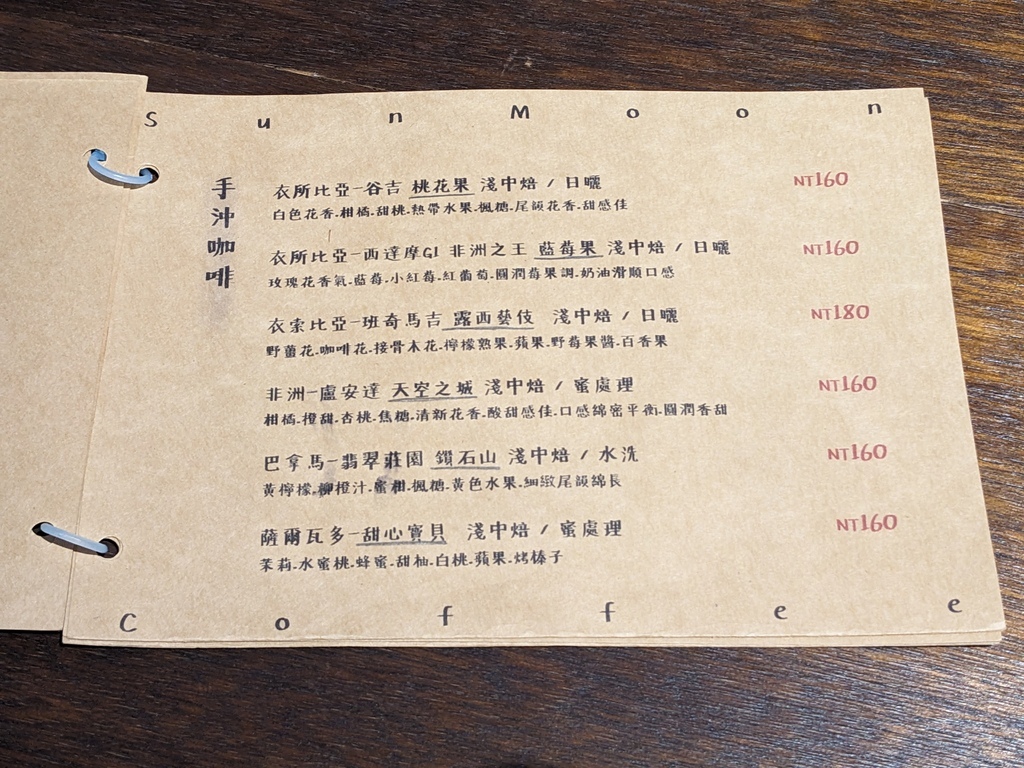 Sun Moon
手沖咖啡
衣所比亞-谷吉 桃花果 淺中焙 / 日曬 NT160
白色花香.柑橘.甜桃.熱帶水果.楓糖.尾韻花香.甜感佳
衣所比亞-西達摩G1 非洲之王 藍莓果 淺中焙 / 日曬 NT160
玫瑰花香氣.藍莓.小紅莓.紅葡萄.圓潤莓果調.奶油滑順口感
衣索比亞-班奇馬吉 露西藝伎 淺中焙 / 日曬 NT180
野薑花.咖啡花.接骨木花.檸檬熟果.蘋果.野莓果醬.百香果
非洲-盧安達 天空之城 淺中焙 / 蜜處理 NT160
柑橘.橙甜.杏桃.焦糖.清新花香.酸甜感佳.口感綿密平衡.圓潤香甜
巴拿馬-翡翠莊園 鑽石山 淺中焙 / 水洗 NT160
黃檸檬.柳橙汁.蜜柑.楓糖.黃色水果.細緻尾韻綿長
薩爾瓦多-甜心寶貝 淺中焙 / 蜜處理 NT160
茉莉.水蜜桃.蜂蜜.甜柚.白桃.蘋果.烤榛子
Coffee